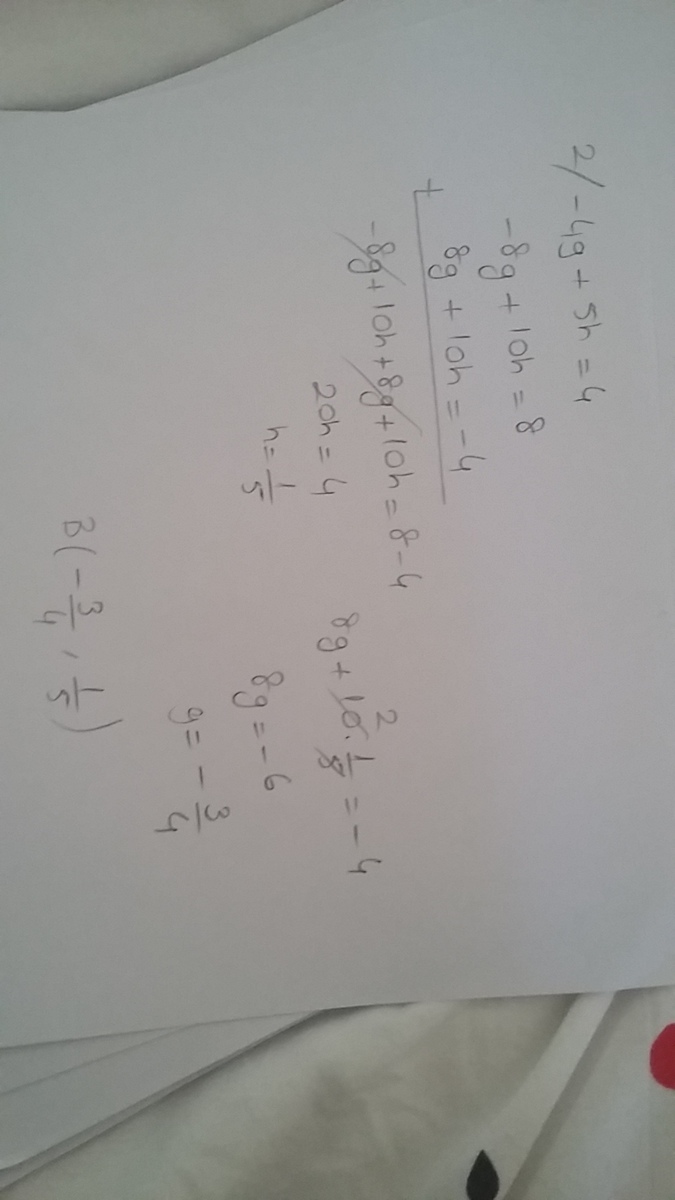 2/ -4g + 5h = 4
-8g + 10h = 8
8g + 10h = -4
+
-8g + 10h + 8g + 10h = 8 - 4
20h = 4
h = 1/5
8g + 10 2 · 1/5 = -4
8g = -6
g = -3/4
B(-3/4, 1/5)